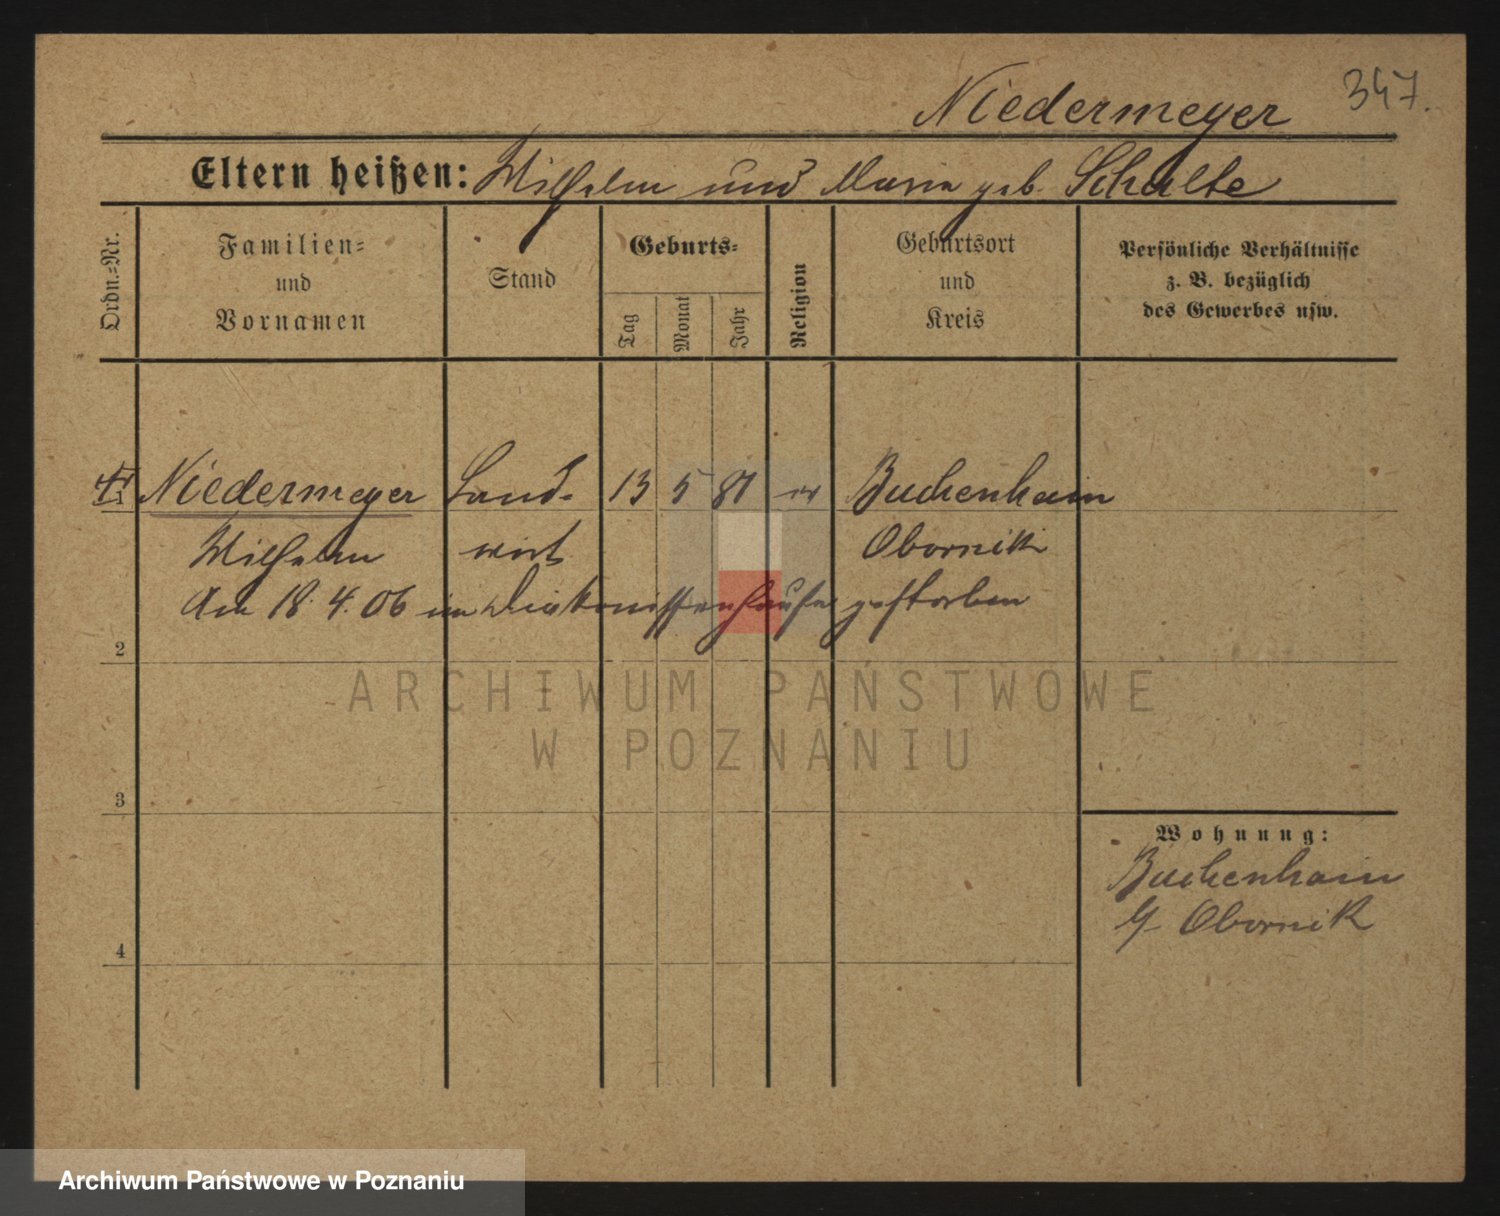 347.
Niedermeyer
Eltern heißen: Wilhelm und Maria geb. Schulte
Ordn.=Nr.
Familien=
und
Vornamen
Stand
Geburts=
Tag
Monat
Jahr
Religion
Geburtsort
und
Kreis
Persönliche Verhältnisse
z. B. bezüglich
des Gewerbes usw.
1 Niedermeyer Land- 13 5 81 ev Buchenhain
Wilhelm wirt Obornik
Am 18.4.06 im Diakonissenhause gestorben
2
3
4
Wohnung:
Buchenhain
Obornik
ARCHIWUM PAŃSTWOWE
W POZNANIU
Archiwum Państwowe w Poznaniu